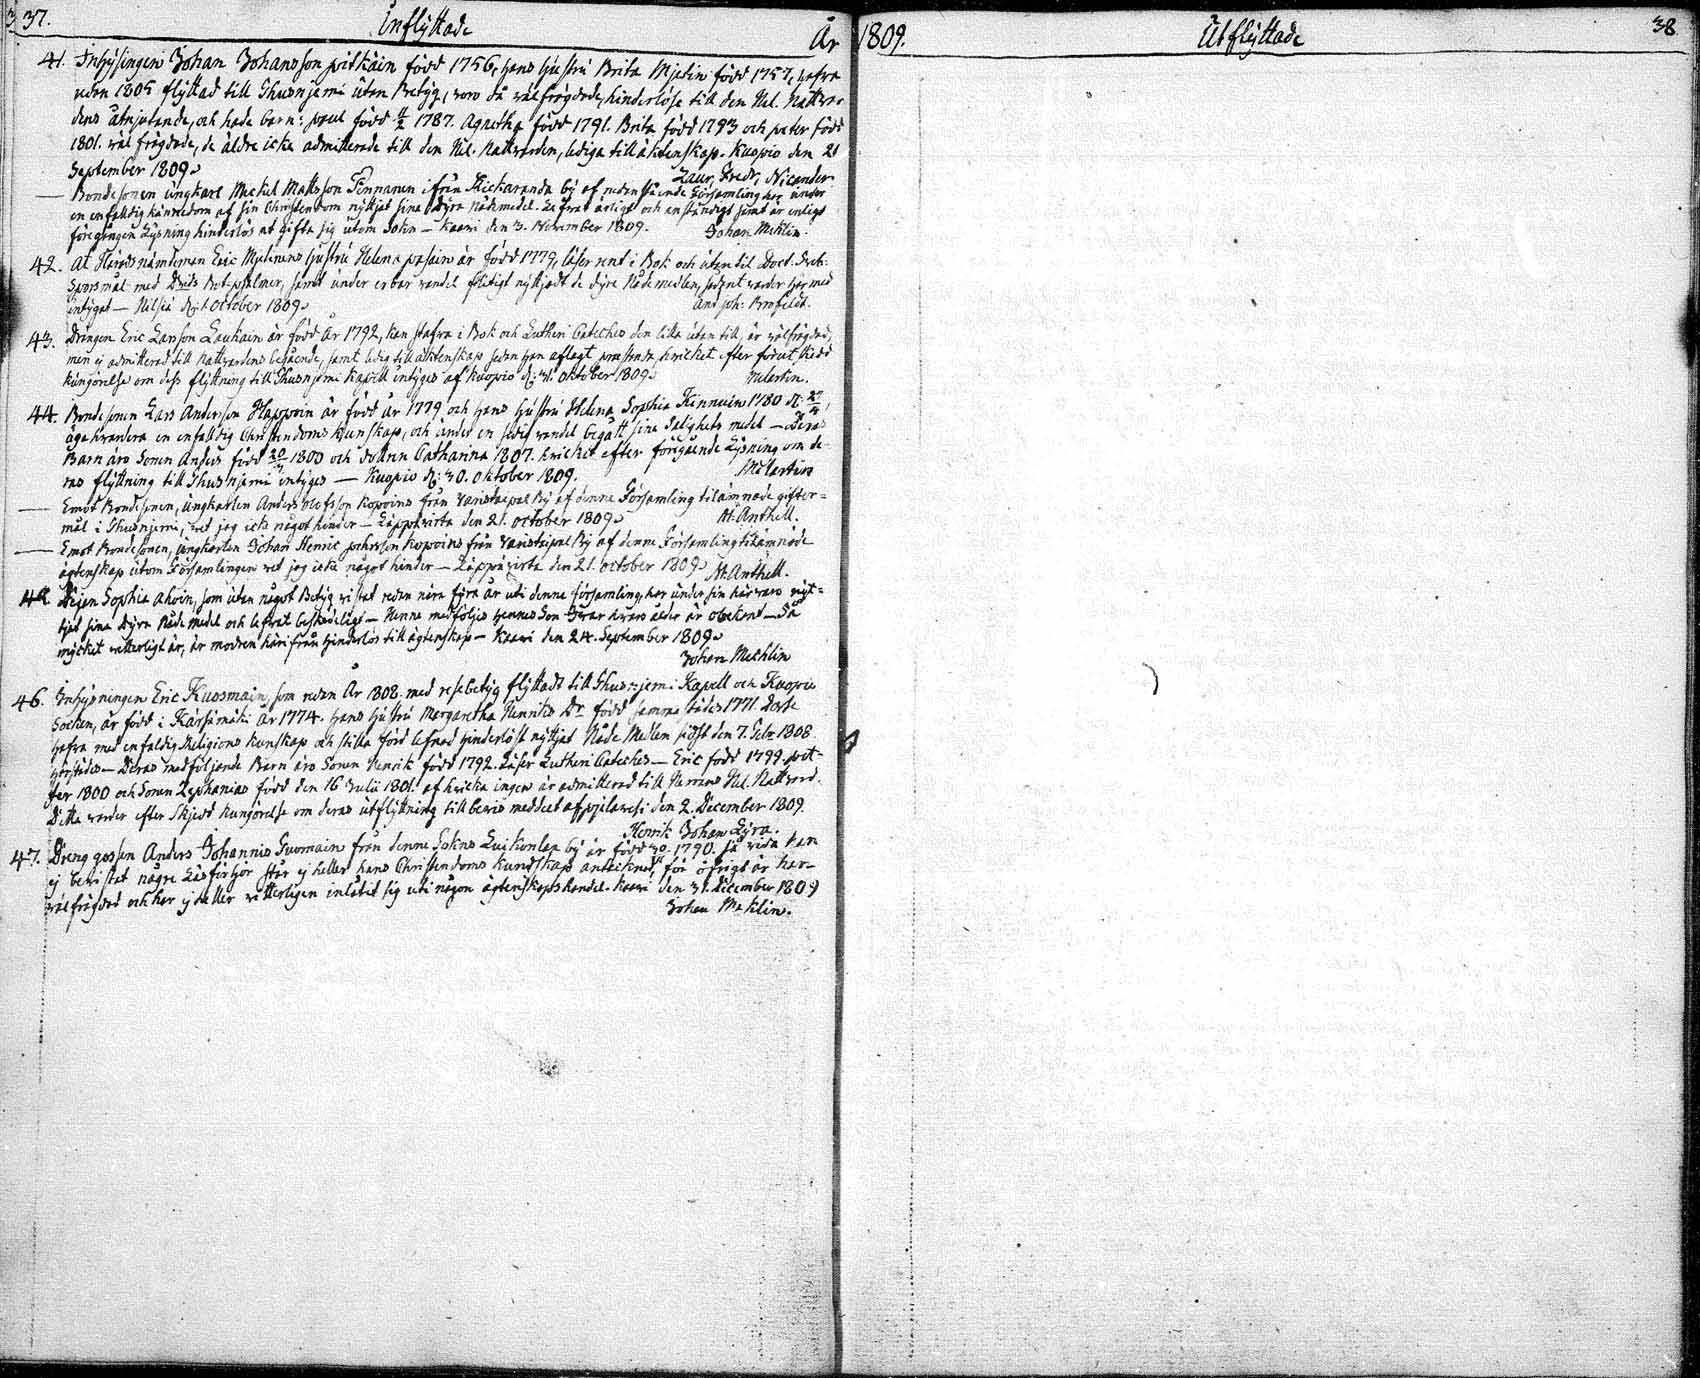 37.
Inflyttade
År
41. Inhysingen Johan Johansson pitkäin född 1756, hans hustru Brita Mjetin född 1757, hafva
redan 1805 flyttad till Idensalmi utan Betyg, voro då välfrägdade, hinderlöse till den Hel. Nattvar
dens åtnjutande, och hade barn: paul född 1787. Agnetha född 1791. Brita född 1793 och peter född
1801. väl frägdade, de äldre icke admitterade till den Hel. Nattvarden, lediga till äktenskap. Kuopio den 21
September 1809.
Laur. Fredr. Nicander
— Bondesonen ungkarl Mickel Mattsson Pennanen ifrån Kiekaranda by af nedanstående Församling har under
en enfaldig kännedom af sin Christendom nyttjat sina dyra nådemedel. Lefvat ärligt och anständigt samt är enligt
föregången Lysning hinderlös at gifta sig utom Sokn — Kaavi den 3. November 1809.
Johan Meklin.
42. At Häradsnämdeman Eric hustru Helena är född 1779, läser rent i Bok och utan til Doct.
Spörsmål med Davids Bot-psalmer, samt under ärbar vandel flitigt nyttjadt de dyre Nådemedlen, sådant varder här med
intygat — Nilsiä d. 1. October 1809.
And. Joh:
43. Drängen Eric Larsson Laukain är född År 1792, kan stafva i Bok och Lutheri Cateches den lilla utan till, är välfrägdad,
men ej admitterad till Nattvardens begående, samt ledig till äktenskap sedan han aflagt hvilket efter förut skedd
kungörelse om dess flyttning till Kapell intyges af Kuopio d. 31. Oktober 1809.
Molartin.
44. Bondesonen Lars Andersson Happoin är född år 1779 och hans hustru Helena Sophia Kinnuin 1780 d. 27/4,
äga hvardera en enfaldig Christendoms kunskap, och under en sedig vandel begått sina Salighets medel — Deras
Barn äro Sonen Anders född 1803 och Anna Catharina 1807. hvilket efter föregående Lysning om de-
ras flyttning till intyges — Kuopio d. 30. Oktober 1809.
Molartin
— Emot Bondesonen, ungkarlen Anders Olofsson Kopoins från Varistaipal By af denne Församling tilämnade gifter=
mål i vet jag icke något hinder — Läppävirta den 21. October 1809.
At. Anthell.
— Emot Bondesonen, ungkarlen Johan Henric Kopoins från Varistaipal By af denne Församling tilämnade
ägtenskap utom Församlingen vet jag icke något hinder — Läppävirta den 21. October 1809.
At. Anthell.
45. Pigan Sophia Ahoin, som utan något Betyg vistat redan nära fyra år uti denne församling, har under sin härvaro nyt=
tjat sina dyra Nådemedel och lefvat beskedeligt — Henne medföljer hennes Son Ivar hvars ålder är obekant — Så
mycket vetterligt är, är modren härifrån hinderlös till ägtenskap — Kaavi den 24. September 1809.
Johan Mechlin
46. Inhysningen Eric Kuosmain, som redan År 1808. med resebetyg flyttadt till Kapell och Kuopio
Socken, är född i Kärsämäki År 1774. hans hustru Margaretha Henriks Dr född samma städes 1771. Desse
hafva med enfaldig Religions kunskap och stilla förd lefnad hinderlöst nyttjat Nåde Medlen sidst den 7. Febr. 1808
härstädes — Deras medföljande Barn äro Sonen Henrik född 1792. Läser Lutheri Cateches — Eric född 1799. pet-
ter 1800 och Sonen Zephanias född den 16 Julii 1801. af hvilka ingen är admitterad till Herrans Hel. Nattvard.
Detta varder efter skjedd kungörelse om deras utflyttning till bevis meddelt af pyhäjärvi den 2. December 1809.
Henrik Johan Lyra.
47. Dreng gossen Anders Johannis Suomain från denne Sokns Luikonlax by är född 1790. Så vida han
ej bevistat några Läsförhör står ej heller hans Christendoms kundskap antecknad, för öfrigt är han
välfrägdad och har ej heller vetterligen inlåtit sig uti någon ägtenskapshandel. Kaavi den 31. December 1809
Johan Meklin.
1809.
Utflyttade
38